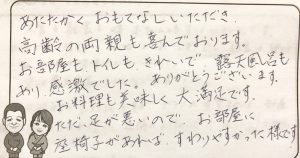 あたたかく おもてなしいただき、
高齢の両親も喜んでおります。
お部屋も、トイレも きれいで、露天風呂も
あり、感激でした。ありがとうございます。
お料理も美味しく 大満足です。
ただ、足が悪いので、お部屋に
座椅子があれば、すわりやすかった様です